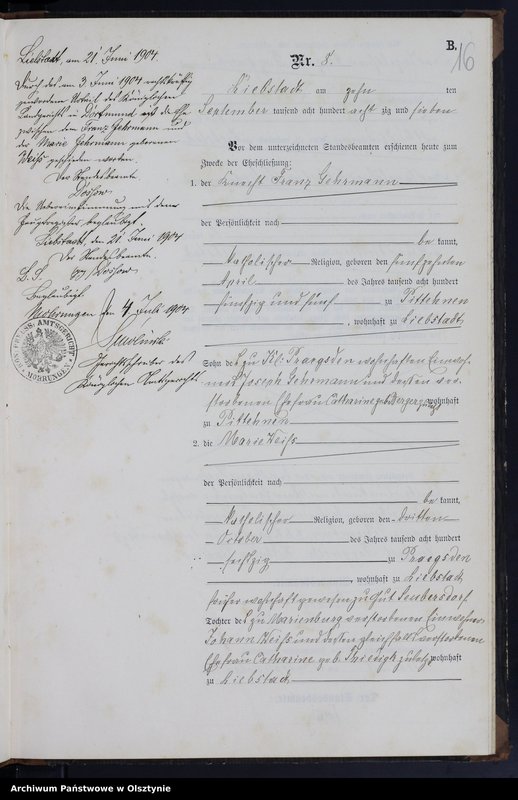 B.
16
Nr. 8.
Liebstadt am zehn ten
September tausend acht hundert acht zig und sieben
Vor dem unterzeichneten Standesbeamten erschienen heute zum
Zwecke der Eheschließung:
1. der Knecht Franz Gehrmann
der Persönlichkeit nach
be kannt,
katholischer Religion, geboren den fünfzehnten
April des Jahres tausend acht hundert
fünfzig und fünf zu Pittehnen
, wohnhaft zu Liebstadt
Sohn des zu Kl. Praegsden wohnhaften Einwoh-
ners Joseph Gehrmann und dessen ver-
storbenen Ehefrau Catharine geb. Berger zuletzt wohnhaft
zu Pittehnen
2. die Marie Weiß
der Persönlichkeit nach
be kannt,
katholischer Religion, geboren den dritten
October des Jahres tausend acht hundert
sechzig zu Praegsden
, wohnhaft zu Liebstadt
früher wohnhaft gewesen zu Gut Seubersdorf
Tochter des zu Marienburg verstorbenen Einwohners
Johann Weiß und dessen gleichfalls verstorbenen
Ehefrau Catharine geb. zuletzt wohnhaft
zu Liebstadt
Liebstadt, am 21. Juni 1904.
Durch das am 3. Juni 1904 rechtskräftig
gewordene Urteil des Königlichen
Landgerichts in Dortmund ist die Ehe
zwischen dem Franz Gehrmann und
der Marie Gehrmann geborenen
Weiß geschieden worden.
Der Standesbeamte
Dossow
Die Uebereinstimmung mit dem
Hauptregister beglaubigt.
Liebstadt, den 21. Juni 1904
Der Standesbeamte.
L. S. Dossow.
Beglaubigt.
Mohrungen, den 4. Juli 1904
Gerichtsschreiber des
Königlichen Amtsgerichts
KÖNIGL. PREUSS. AMTSGERICHT
MOHRUNGEN
Archiwum Państwowe w Olsztynie